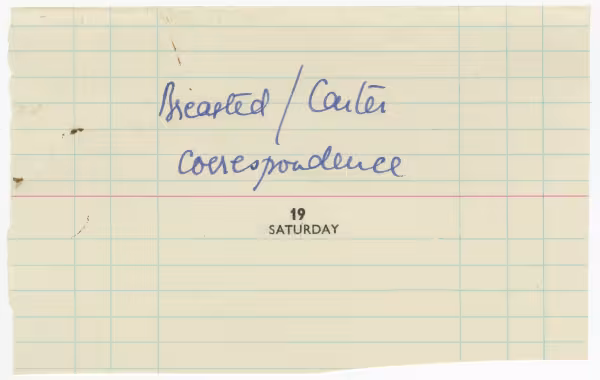 Breasted / Carter
Correspondence
19
SATURDAY